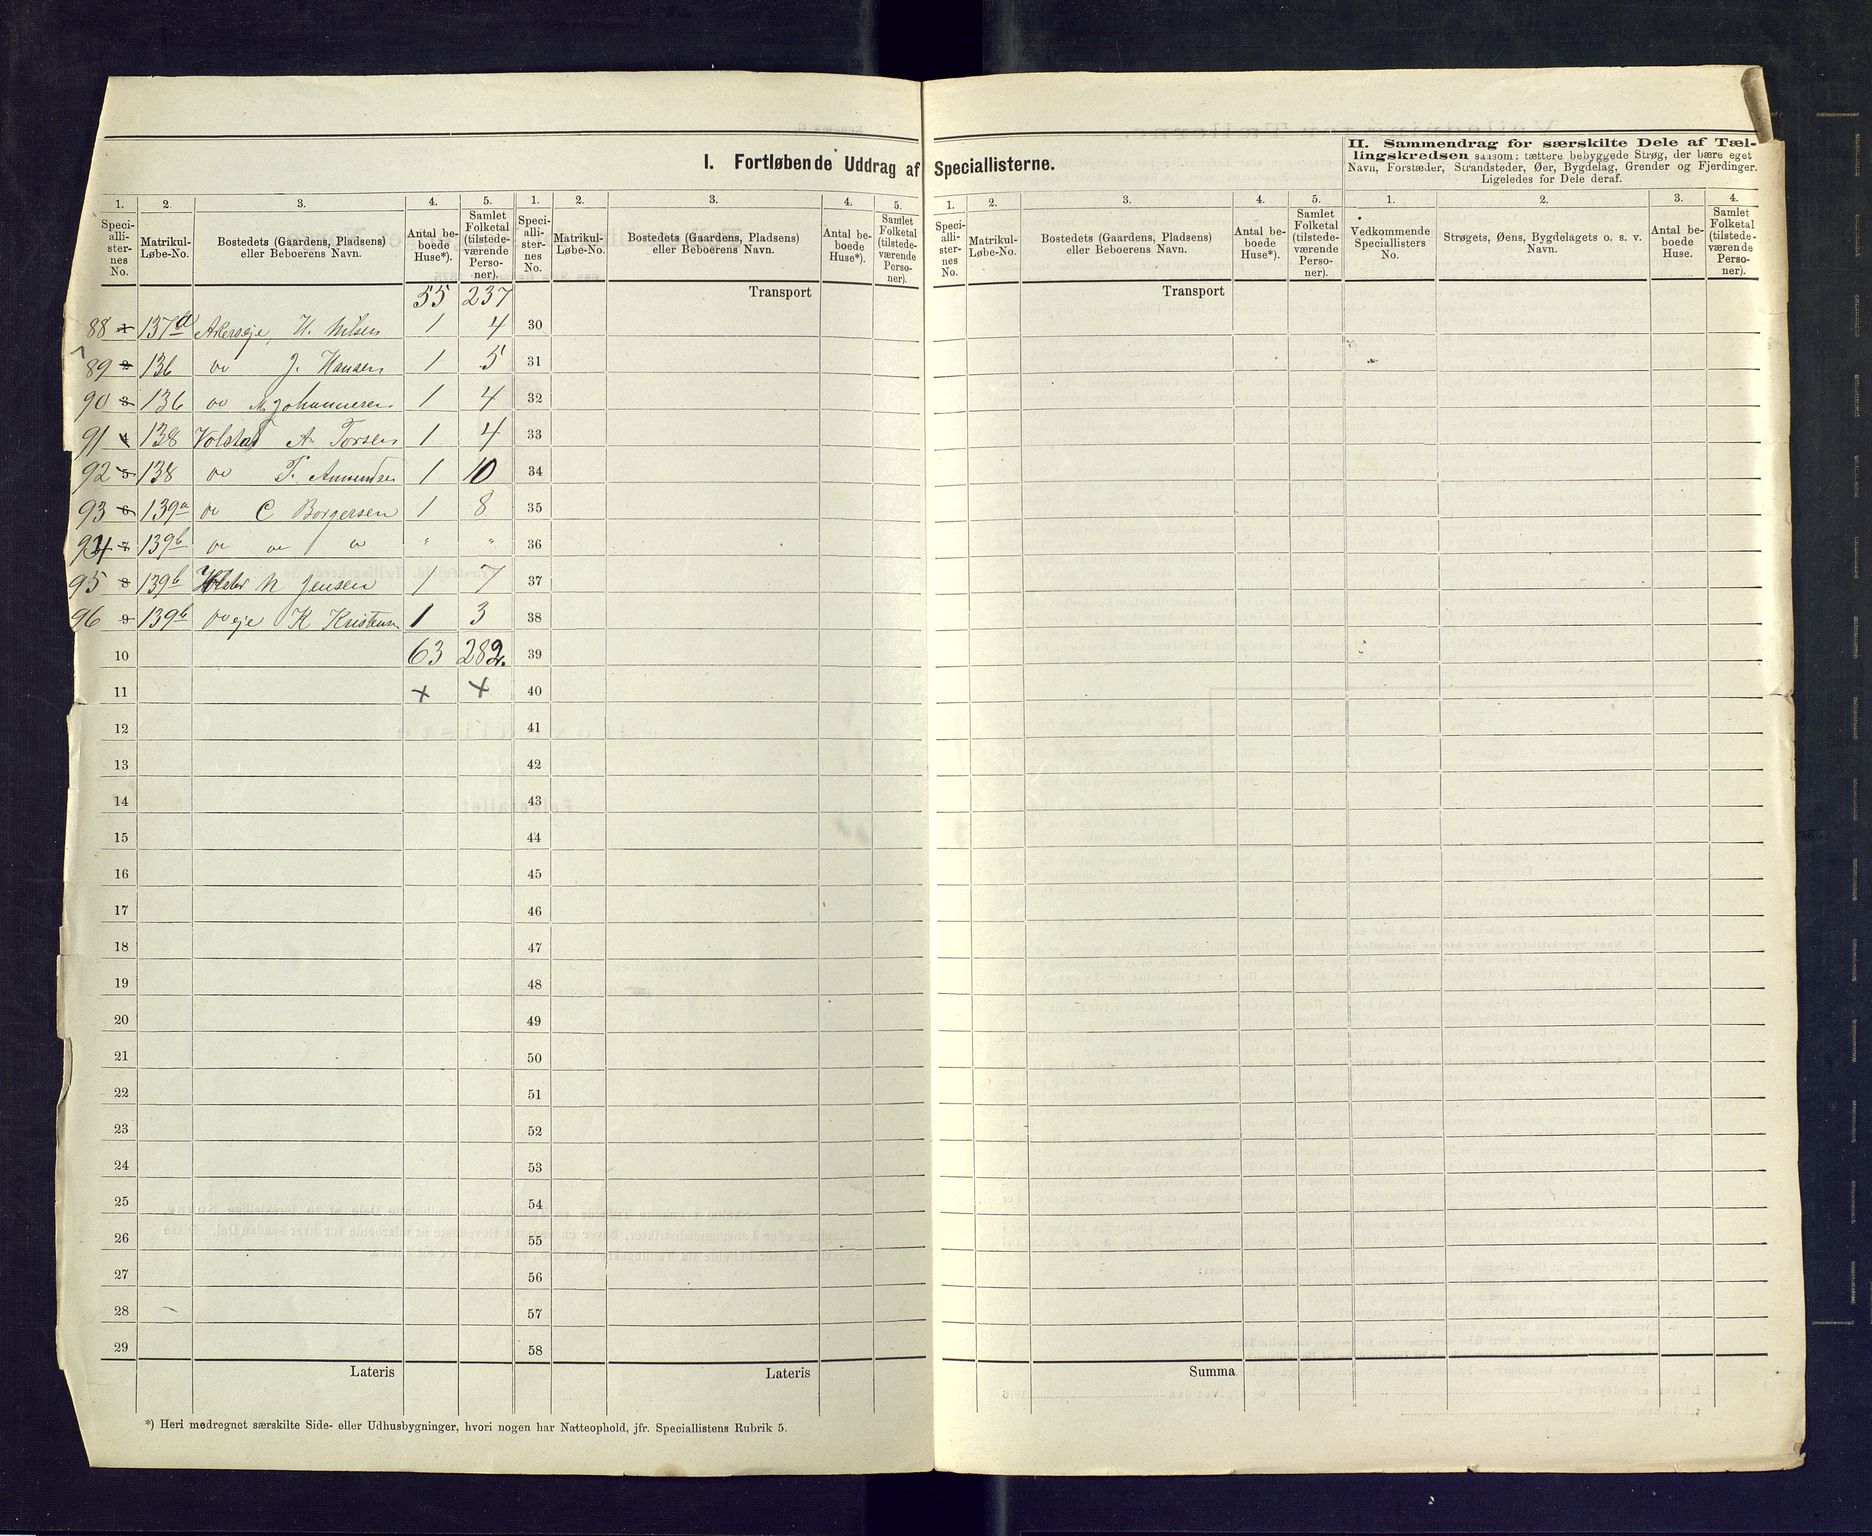 I. Fortløbende Uddrag af Speciallisterne.
II. Sammendrag for særskilte Dele af Tæl-
lingskredsen saasom: tættere bebyggede Strøg, der bære eget
Navn, Forstæder, Strandsteder, Øer, Bygdelag, Grender og Fjerdinger.
Ligeledes for Dele deraf.
1. 2. 3. 4. 5. 1. 2. 3. 4. 5. 1. 2. 3. 4. 5. 1. 2. 3. 4.
Speci-
alli-
ster-
nes
No.
Matrikul-
Løbe-No.
Bostedets (Gaardens, Pladsens)
eller Beboerens Navn.
Antal be-
boede
Huse*).
Samlet
Folketal
(tilstede-
værende
Perso-
ner).
Speci-
alli-
ster-
nes
No.
Matrikul-
Løbe-No.
Bostedets (Gaardens, Pladsens)
eller Beboerens Navn.
Antal be-
boede
Huse*).
Samlet
Folketal
(tilstede-
værende
Perso-
ner).
Speci-
alli-
ster-
nes
No.
Matrikul-
Løbe-No.
Bostedets (Gaardens, Pladsens)
eller Beboerens Navn.
Antal be-
boede
Huse*).
Samlet
Folketal
(tilstede-
værende
Perso-
ner).
Vedkommende
Speciallisters
No.
Strøgets, Øens, Bygdelagets o. s. v.
Navn.
Antal be-
boede
Huse.
Samlet
Folketal
(tilstede-
værende
Perso-
ner).
55 237 Transport Transport
88 1 137a H. Nilsen 1 4 30
89 2 136 do J. Hansen 1 5 31
90 3 136 do 1 4 32
91 4 138 Volstad A. Torsen 1 4 33
92 5 138 do T. Amundsen 1 10 34
93 6 139a do C Borgersen 1 8 35
94 7 139b do do do " " 36
95 8 139b N Jensen 1 7 37
96 9 139b do eje K 1 3 38
10 63 282. 39
11 + + 40
12 41
13 42
14 43
15 44
16 45
17 46
18 47
19 48
20 49
21 50
22 51
23 52
24 53
25 54
26 55
27 56
28 57
29 58
Lateris Lateris Summa
*) Heri medregnet særskilte Side- eller Udhusbygninger, hvori nogen har Natteophold, jfr. Speciallistens Rubrik 5.